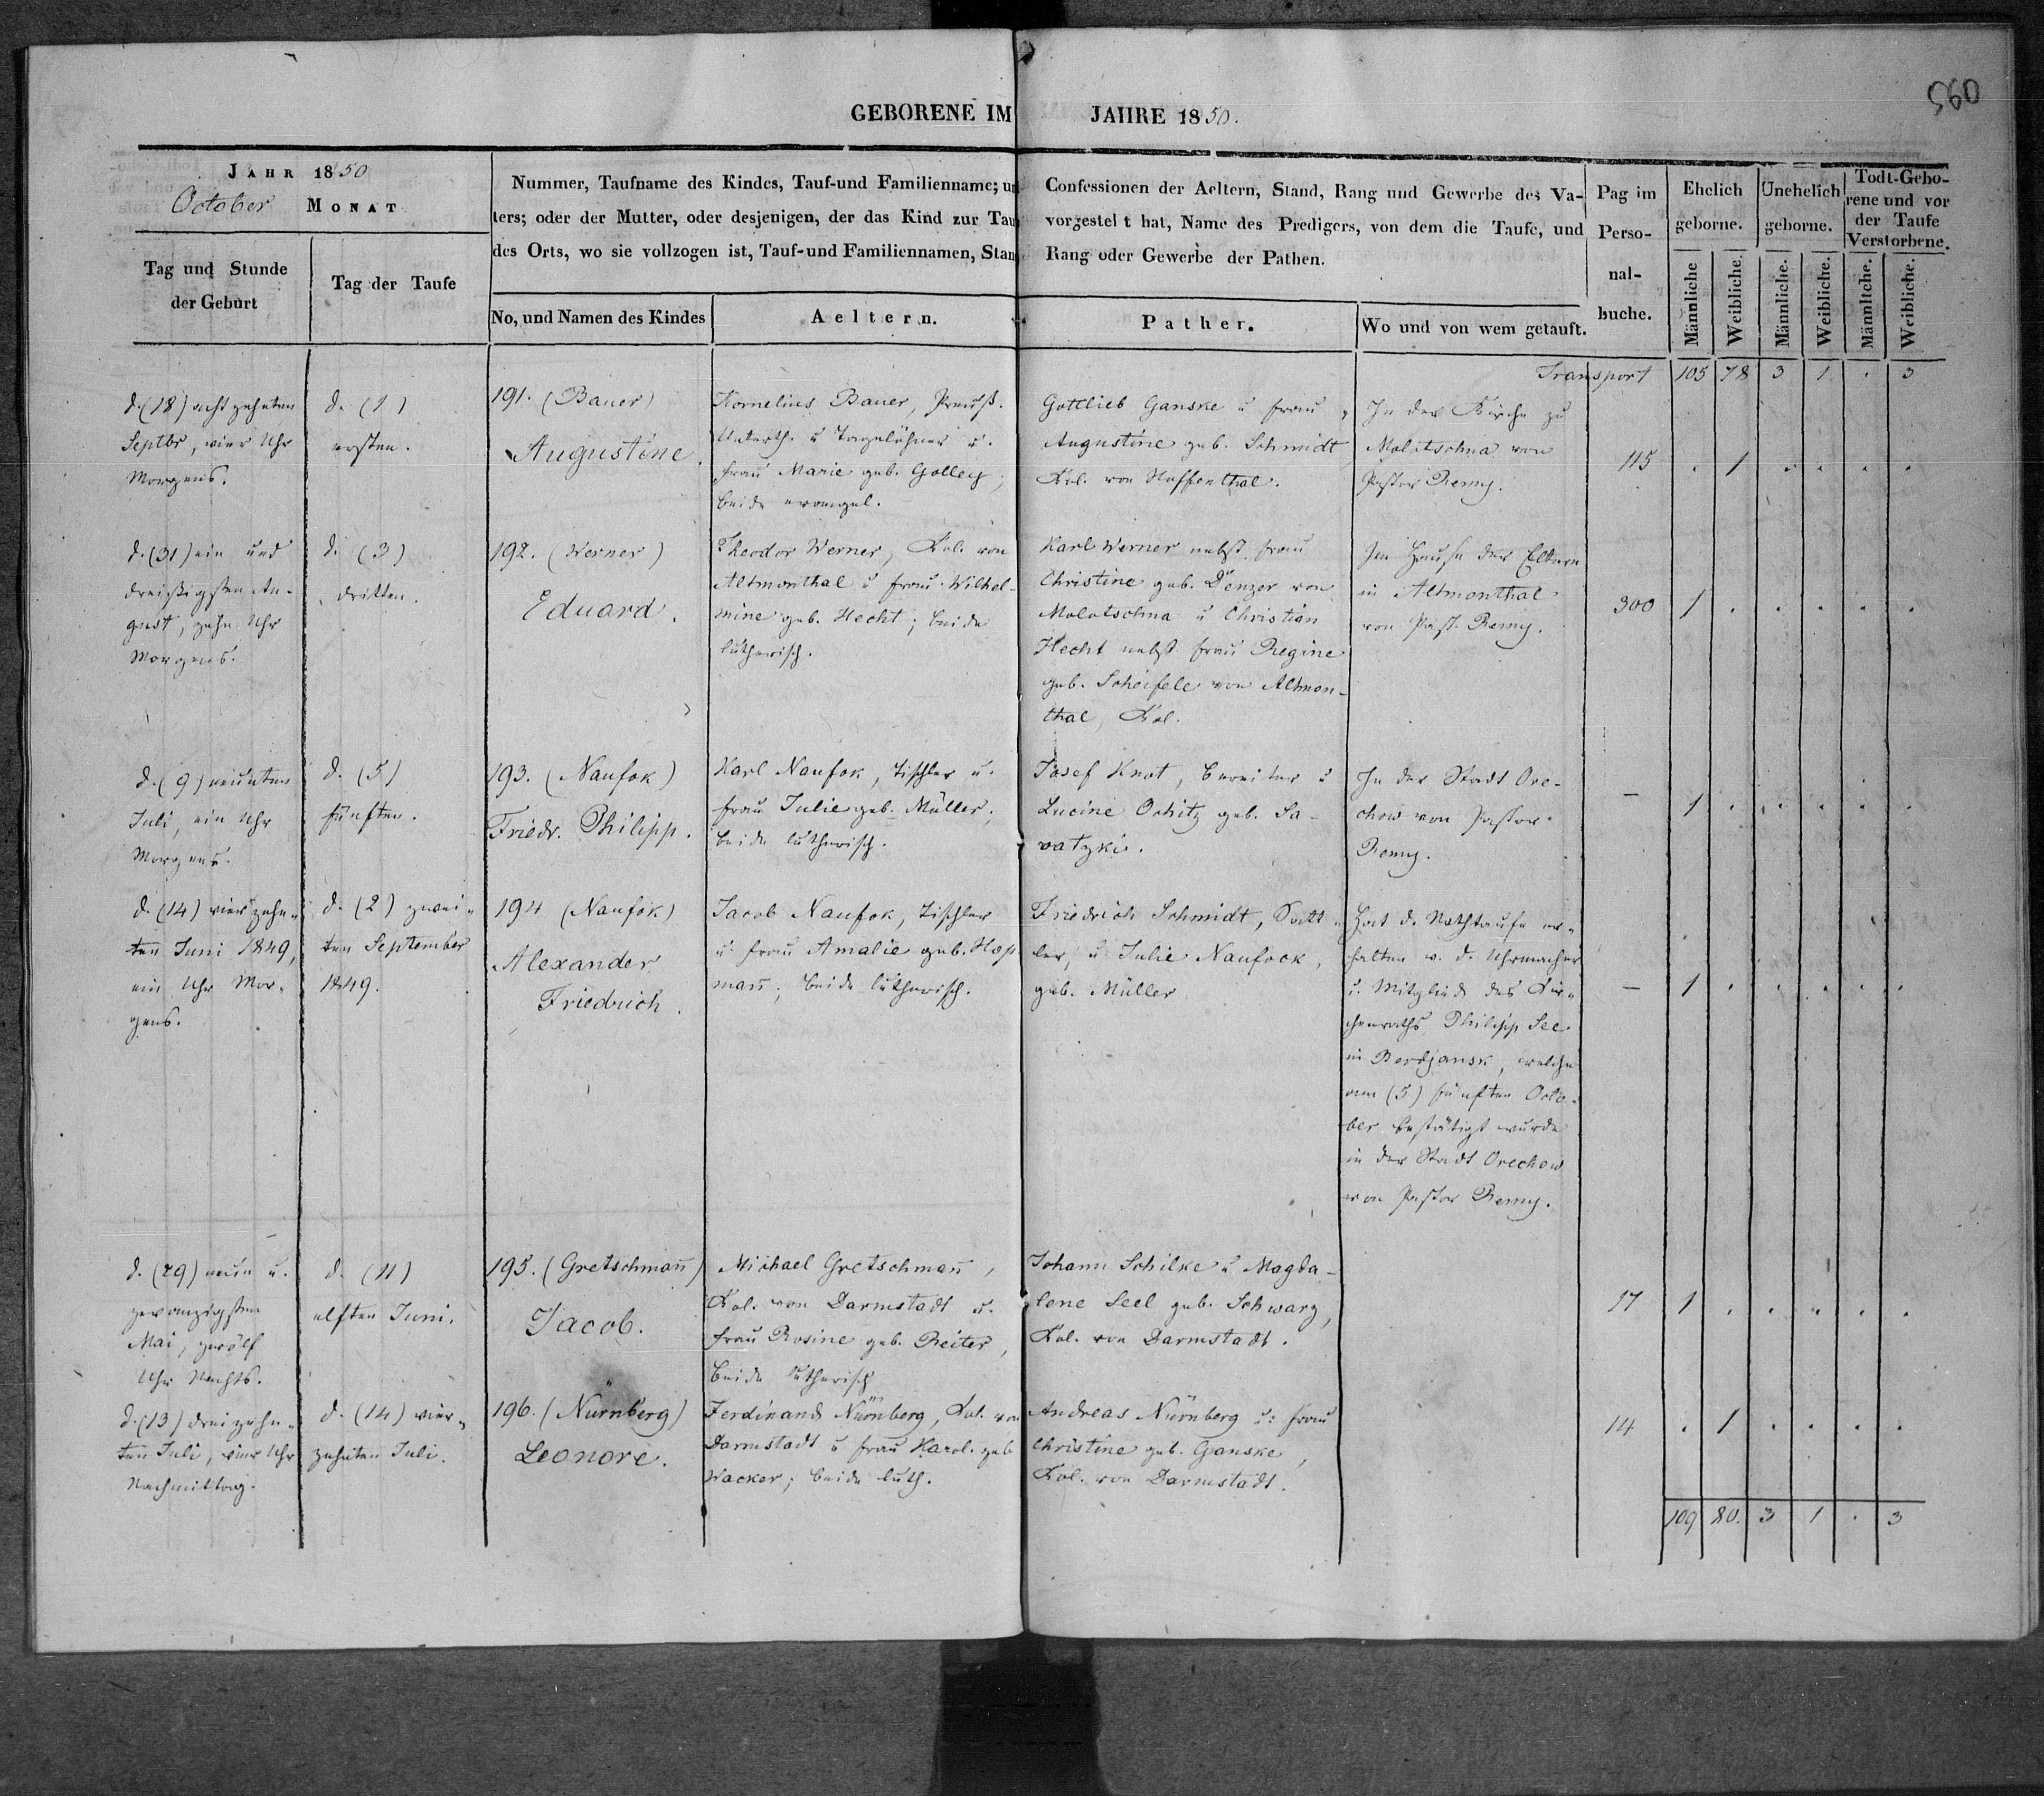 560
GEBORENE IM JAHRE 1850.
JAHR 1850
October MONAT
Tag und Stunde
der Geburt
Tag der Taufe
Nummer, Taufname des Kindes, Tauf-und Familienname; un
ters; oder der Mutter, oder desjenigen, der das Kind zur Tau
des Orts, wo sie vollzogen ist, Tauf-und Familiennamen, Stan
No, und Namen des Kindes
Aeltern.
Confessionen der Aeltern, Stand, Rang und Gewerbe des Va-
vorgestel t hat, Name des Predigers, von dem die Taufe, und
Rang oder Gewerbe der Pathen.
Pather.
Wo und von wem getauft.
Pag im
Perso-
nal-
buche.
Ehelich
geborne.
Unehelich
geborne.
Todt-Gebo-
rene und vor
der Taufe
Verstorbene.
Männliche
Weibliche.
Männliche.
Weibliche.
Männltche.
Weibliche.
Transport 105 78 3 1 . 3
d. (18) achtzehnten
Septbr, vier Uhr
Morgens.
d. (1)
ersten.
191. (Bauer)
Augustine.
Kornelius Bauer, Preuß.
Unterth. u Tagelöhner u.
Frau Marie geb. Golley;
beide evangel.
Gottlieb Ganske u Frau
Augustine geb. Schmidt
Kol. von Hoffenthal.
In der Kirche zu
Molotschna von
Pastor Remy.
115 . 1 . . . .
d. (31) ein und
dreißigsten Au-
gust, zehn Uhr
Morgens.
d. (3)
dritten.
192. (Werner)
Eduard.
Theodor Werner, Kol. von
Altmonthal u Frau Wilhel-
mine geb. Hecht; beide
lutherisch.
Karl Werner nebst Frau
Christine geb. Denzer von
Molotschna u Christian
Hecht nebst Frau Regine
geb. Scheifele von Altmon-
thal, Kol.
Im Hause der Eltern
in Altmonthal
von Past. Remy.
300 1 . . . . .
d. (9) neunten
Juli, ein Uhr
Morgens.
d. (5)
fünften.
193. (Naufok)
Friedr. Philipp.
Karl Naufok, Tischler u.
Frau Julie geb. Müller.
beide lutherisch.
Josef Knot, Bereiter u
Lucine Ochitz geb. Sa-
vatzki.
In der Stadt Ore-
chow von Pastor
Remy.
– 1 . . . . .
d. (14) vierzehn-
ten Juni 1849,
ein Uhr Mor-
gens.
d. (2) zwei-
ten September
1849.
194 (Naufok)
Alexander
Friedrich.
Jacob Naufok, Tischler
u Frau Amalie geb.
mañ; beide lutherisch.
Friedrich Schmidt, Satt-
ler, u Julie Naufock,
geb. Müller
Hat d. Nothtaufe er-
halten v. d. Uhrmacher
u. Mitglied des Kir-
chenraths Philipp See
in Berdjansk, welche
am (5) fünften Octo-
ber bestätigt wurde
in der Stadt Orechow
von Pastor Remy.
– 1 . . . . .
d. (29) neun u.
zwanzigsten
Mai, zwölf
Uhr Nachts.
d. (11)
elften Juni.
195. (Gretschmañ)
Jacob.
Michael Gretschmañ,
Kol. von Darmstadt u.
Frau Rosine geb. Reiter,
beide lutherisch
Johann Schilke u Magda-
lene Seel geb. Schwarz,
Kol. von Darmstadt.
17 1 . . . . .
d. (13) dreizehn-
ten Juli, vier Uhr
Nachmittag.
d. (14) vier-
zehnten Juli.
196. (Nürnberg)
Leonore.
Ferdinand Nürnberg, Kol. von
Darmstadt u Frau Karol. geb
Wacker; beide luth.
Andreas Nürnberg u. Frau
Christine geb. Ganske,
Kol. von Darmstadt.
14 . 1 . . . .
109 80. 3 1 . 3